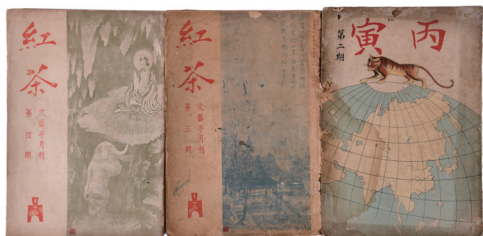 紅茶
文藝半月刊
第四期
紅茶
文藝半月刊
第三期
丙寅
第二期